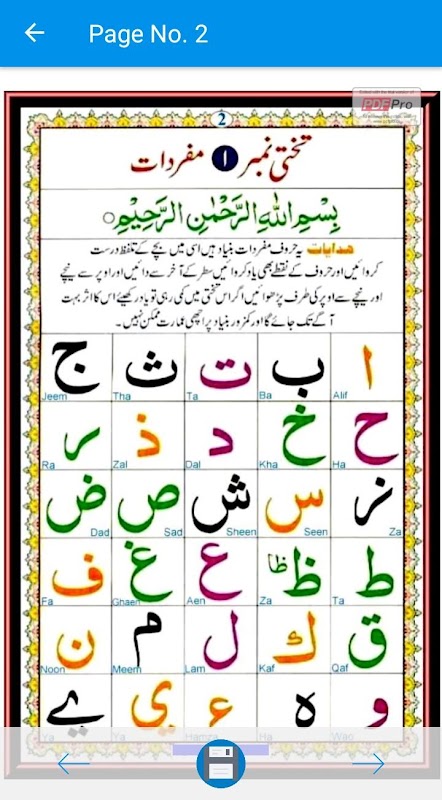 Page No. 2
PDF Pro
2
تختی نمبر ۱ مفردات
بِسْمِ اللهِ الرَّحْمٰنِ الرَّحِيْمِ
ھدایات یہ حروف مفردات بنیاد ہیں اسی میں بچے کے تلفظ درست
کروائیں اور حروف کے نقطے بھی یاد کروائیں سطر کے آخر سے دائیں اور اوپر سے نیچے
اور نیچے سے اوپر کی طرف پڑھوائیں اگر اس تختی میں کمی رہی تو یاد رکھیئے اس کا اثر بہت
آگے تک جائے گا اور کمزور بنیاد پر اچھی عمارت ممکن نہیں۔
ا ب ت ث ج
Alif Ba Ta Tha Jeem
ح خ د ذ ر
Ha Kha Dal Zal Ra
ز س ش ص ض
Za Seen Sheen Sad Dad
ط ظ ظا ع غ ف
Ta Za Aen Ghaen Fa
ق ك ل م ن
Qaf Kaf Lam Meem Noon
و ه ء ي ے
Wao Ha Hamza Ya Ya